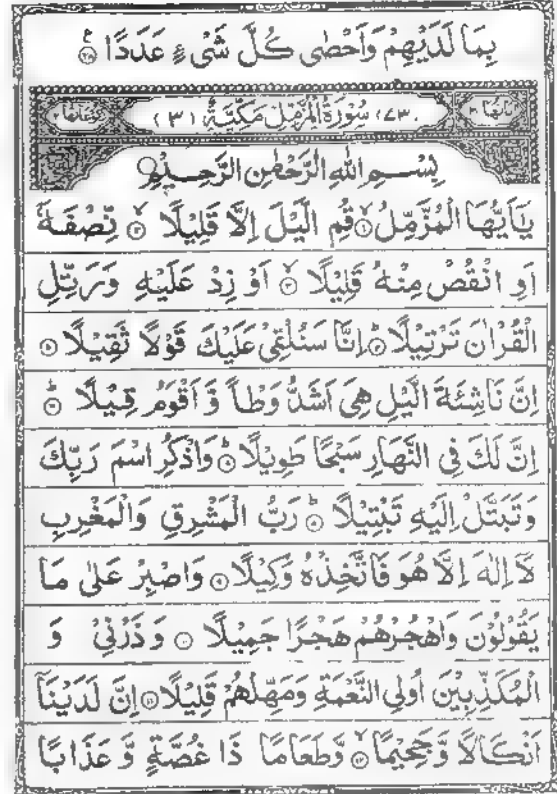 بِمَا لَدَيْهِمْ وَاَحْصٰى كُلَّ شَىْءٍ عَدَدًا ۝٢٨ ع
اٰيَاتُهَا ٢٠ ﴿٧٣﴾ سُوْرَةُ الْمُزَّمِّلِ مَكِّيَّةٌ (٣) رُكُوْعَاتُهَا ٢
بِسْمِ اللهِ الرَّحْمٰنِ الرَّحِيْمِ
يٰۤاَيُّهَا الْمُزَّمِّلُ ۝١ قُمِ الَّيْلَ اِلَّا قَلِيْلًا ۝٢ نِّصْفَهٗۤ
اَوِ انْقُصْ مِنْهُ قَلِيْلًا ۝٣ اَوْ زِدْ عَلَيْهِ وَرَتِّلِ
الْقُرْاٰنَ تَرْتِيْلًا ۝٤ اِنَّا سَنُلْقِيْ عَلَيْكَ قَوْلًا ثَقِيْلًا ۝٥
اِنَّ نَاشِئَةَ الَّيْلِ هِيَ اَشَدُّ وَطْاً وَّ اَقْوَمُ قِيْلًا ۝٦
اِنَّ لَكَ فِي النَّهَارِ سَبْحًا طَوِيْلًا ۝٧ وَاذْكُرِ اسْمَ رَبِّكَ
وَتَبَتَّلْ اِلَيْهِ تَبْتِيْلًا ۝٨ رَبُّ الْمَشْرِقِ وَالْمَغْرِبِ
لَاۤ اِلٰهَ اِلَّا هُوَ فَاتَّخِذْهُ وَكِيْلًا ۝٩ وَاصْبِرْ عَلٰى مَا
يَقُوْلُوْنَ وَاهْجُرْهُمْ هَجْرًا جَمِيْلًا ۝١٠ وَذَرْنِيْ وَ
الْمُكَذِّبِيْنَ اُولِي النَّعْمَةِ وَمَهِّلْهُمْ قَلِيْلًا ۝١١ اِنَّ لَدَيْنَاۤ
اَنْكَالًا وَّجَحِيْمًا ۝١٢ وَّطَعَامًا ذَا غُصَّةٍ وَّ عَذَابًا